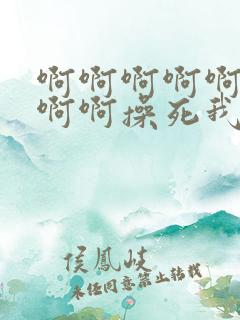 啊啊啊啊啊
啊啊操死我
侯鳳岐
未经同意禁止转载